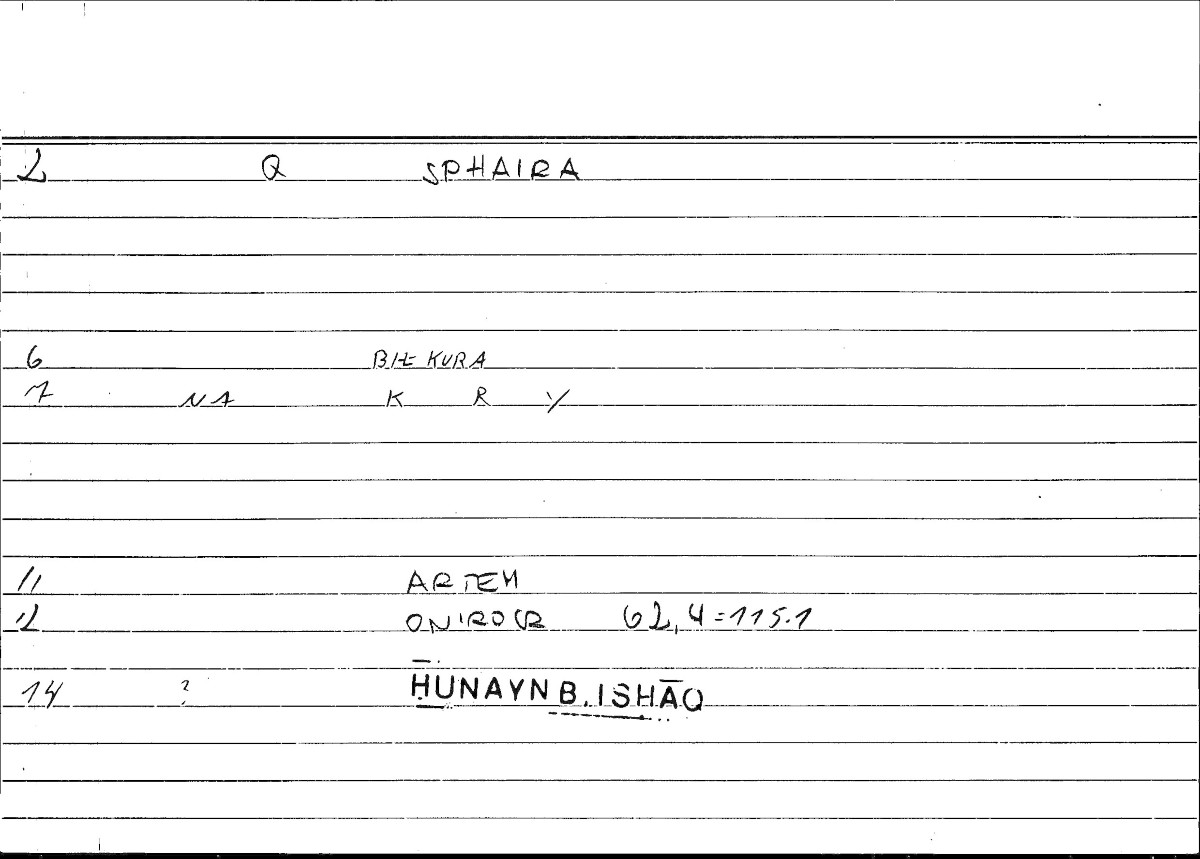 2 Q SPHAIRA
6 BIL KURA
7 NA K R Y
11 ARTEM
12 ONIROCR 62,4=115.1
14 ? ḤUNAYN B. ISḤĀQ